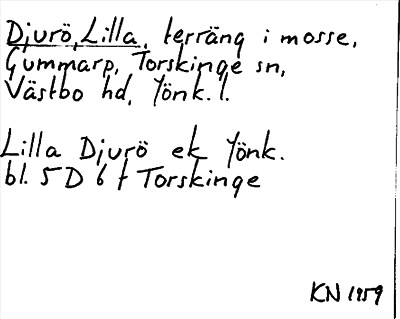 Djurö, Lilla, terräng i mosse,
Gummarp, Torskinge sn,
Västbo hd, Jönk. l.
Lilla Djurö ek Jönk.
bl. 5 D 6 f Torskinge
KN 1959